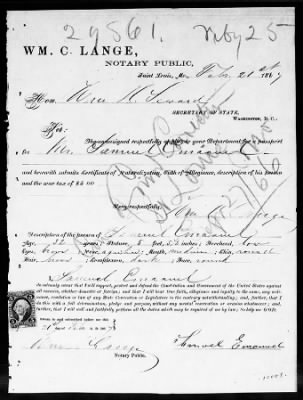 29561.
WM. C. LANGE,
NOTARY PUBLIC,
Saint Louis, Mo., Feb. 21st 1867
Hon. Wm H. Seward
SECRETARY OF STATE,
WASHINGTON, D. C.
Sir:
The undersigned respectfully applies to your Department for a passport
on Mr. Samuel Emanuel
and herewith submits certificate of Naturalization, Oath of Allegiance, description of his person
and war tax of $5 00
Very respectfully,
Wm C. Lange
Description of the person of Samuel Emanuel
Age, 32 years; Stature, 5 feet, inches; Forehead, low
Eyes, Nose, Mouth, medium Chin, round
Hair, Complexion, dark Face, round
Samuel Emanuel
do solemnly swear that I will support, protect and defend the Constitution and Government of the United States against
all enemies, whether domestic or foreign; and that I will bear true faith, allegiance and loyalty to the same, any ordi-
nance, resolution or law of any State Convention or Legislature to the contrary notwithstanding; and, further, that I
do this with a full determination, pledge and purpose, without any mental reservation or evasion whatsoever; and,
further, that I will well and faithfully perform all the duties which may be required of me by law; so help me GOD.
Wm C Lange
Notary Public.
Samuel Emanuel